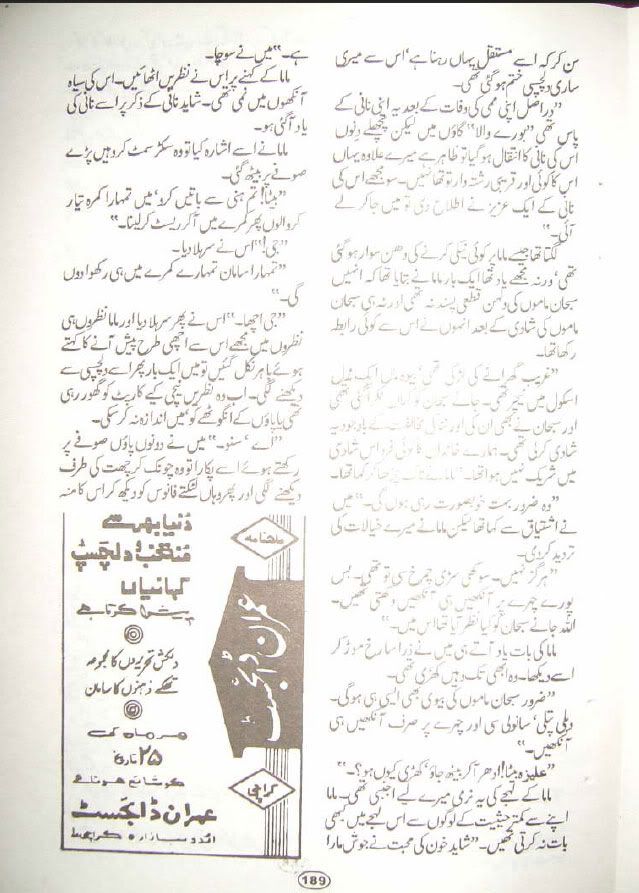 سن کر کہ اسے مستقل یہاں رہنا ہے‘ اس سے میری
ساری دلچسپی ختم ہو گئی تھی۔
”دراصل اپنی ممی کی وفات کے بعد یہ اپنی نانی کے
پاس تھی ”بورے والا“ گاؤں میں لیکن پچھلے دنوں
اس کی نانی کا انتقال ہو گیا تو ظاہر ہے میرے علاوہ یہاں
اس کا کوئی اور قریبی رشتہ دار تو تھا نہیں۔ سو مجھے اس کی
نانی کے ایک عزیز نے اطلاع دی تو میں جا کر لے
آئی۔“
لگتا تھا جیسے ماما پر کوئی نیکی کرنے کی دھن سوار ہو گئی
تھی‘ ورنہ مجھے یاد تھا ایک بار ماما نے بتایا تھا کہ انہیں
سبحان ماموں کی دلہن قطعی پسند نہ تھی اور نہ ہی سبحان
ماموں کی شادی کے بعد انہوں نے اس سے کوئی رابطہ
رکھا تھا۔
”غریب گھرانے کی لڑکی تھی‘ بیوہ ماں ایک
اسکول میں ٹیچر تھی۔ جانے سبحان کو کہاں ٹکرا گئی تھی
اور سبحان نے بھی ان کی اور کی مخالفت کے باوجود یہ
شادی کرلی تھی۔ ہمارے خاندان کا کوئی فرد اس شادی
میں شریک نہیں ہوا تھا۔“ ماما نے کہا تھا۔
”وہ ضرور بہت خوبصورت رہی ہوں گی۔“ میں
نے اشتیاق سے کہا تھا لیکن ماما نے میرے خیالات کی
تردید کردی۔
”ہرگز نہیں۔ سوکھی سڑی چمرخ سی تو تھی۔ بس
پورے چہرے پر آنکھیں ہی آنکھیں دکھتی تھیں۔
اللہ جانے سبحان کو کیا نظر آیا تھا اس میں۔“
ماما کی بات یاد آتے ہی میں نے ذرا سا رخ موڑ کر
اسے دیکھا۔ وہ ابھی تک وہیں کھڑی تھی۔
”ضرور سبحان ماموں کی بیوی بھی ایسی ہی ہوگی۔
دبلی پتلی‘ سانولی سی اور چہرے پر صرف آنکھیں ہی
آنکھیں۔“
”علیزہ بیٹا! ادھر آ کر بیٹھ جاؤ‘ کھڑی کیوں ہو؟“
ماما کے لہجے کی یہ نرمی میرے لیے اجنبی تھی۔ ماما
اپنے سے کمتر حیثیت کے لوگوں سے اس لہجے میں کبھی
بات نہ کرتی تھیں۔ ”شاید خون کی محبت نے جوش مارا
ہے۔“ میں نے سوچا۔
ماما کے کہنے پر اس نے نظریں اٹھائیں۔ اس کی سیاہ
آنکھوں میں نمی تھی۔ شاید نانی کے ذکر پر اسے نانی کی
یاد آ گئی ہو۔
ماما نے اسے اشارہ کیا تو وہ سکڑ سمٹ کر وہیں پڑے
صوفے پر بیٹھ گئی۔
”بیٹا! تم ہنی سے باتیں کرو‘ میں تمہارا کمرہ تیار
کروالوں پھر کمرے میں آکر ریسٹ کرلینا۔“
”جی!“ اس نے سر ہلا دیا۔
”تمہارا سامان تمہارے کمرے میں ہی رکھوا دوں
گی۔“
”جی اچھا۔“ اس نے پھر سر ہلا دیا اور ماما نظروں ہی
نظروں میں مجھے اس سے اچھی طرح پیش آنے کا کہتے
ہوئے باہر نکل گئیں تو میں ایک بار پھر اسے دلچسپی سے
دیکھنے لگی۔ اب وہ نظریں نیچی کیے کارپٹ کو گھور رہی
تھی یا پاؤں کے انگوٹھے کو‘ میں اندازہ نہ کرسکی۔
”اے‘ سنو۔“ میں نے دونوں پاؤں صوفے پر
رکھتے ہوئے اسے پکارا تو وہ چونک کر چھت کی طرف
دیکھنے لگی اور پھر وہاں لٹکتے فانوس کو دیکھ کر اس کا منہ
ماہنامہ
عمران ڈائجسٹ
کراچی
دُنیا بھر سے
منتخب و دلچسپ
کہانیاں
پیش کرتا ہے
دلکش تحریروں کا مجموعہ
تھکے ذہنوں کا سامان
ہر ماہ کی
۲۵ تاریخ
کو شائع ہوتا ہے
عمران ڈائجسٹ
اُردو بازار، کراچی
189